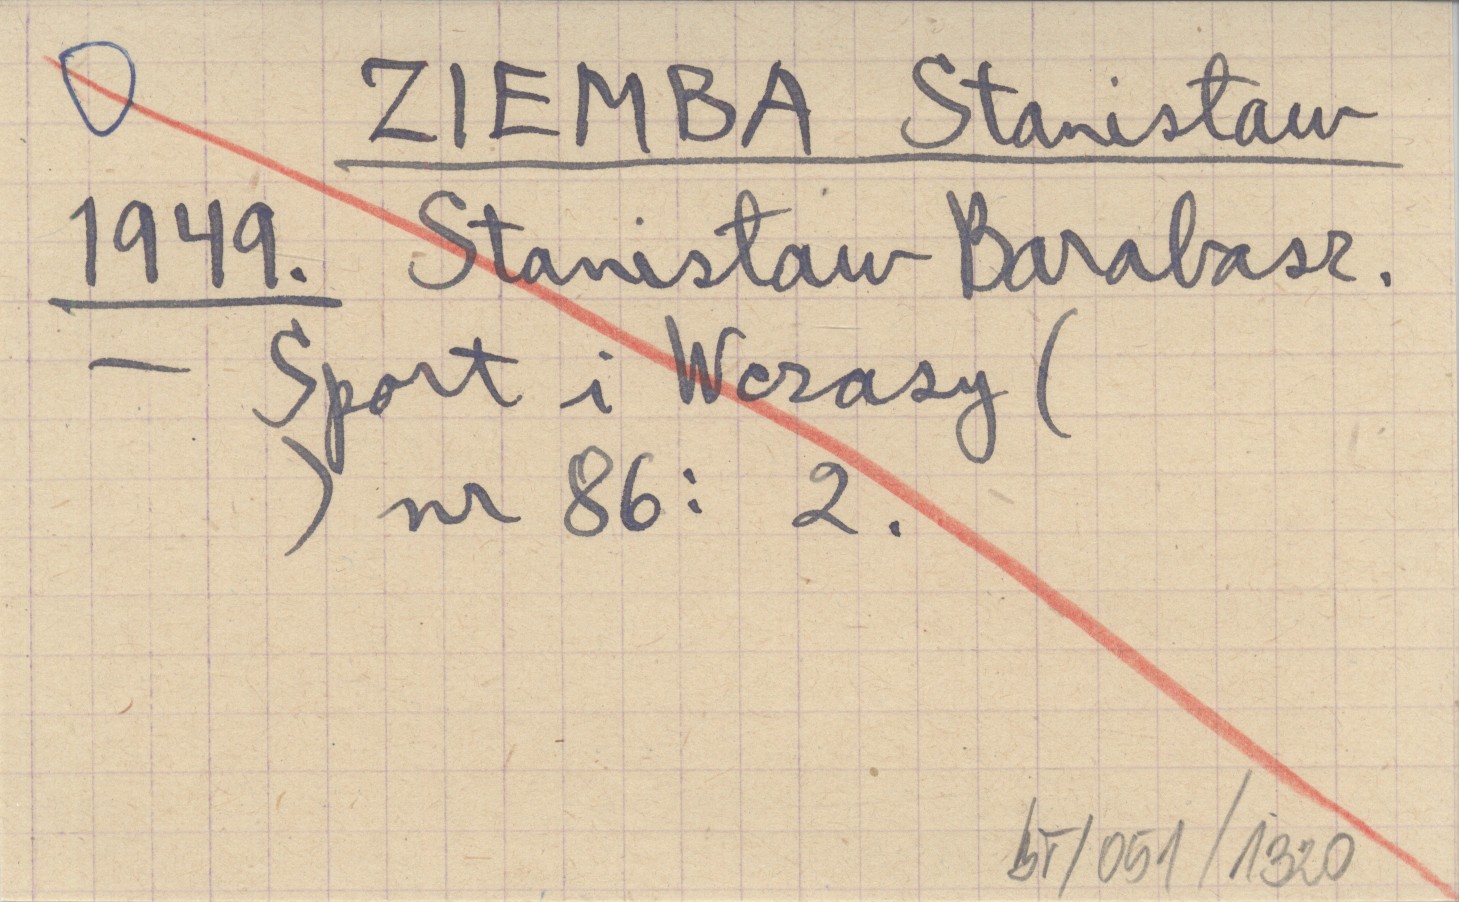 ZIEMBA Stanisław
1949. Stanisław Barabasz.
— Sport i Wczasy (
) nr 86: 2.
bT/051/1320